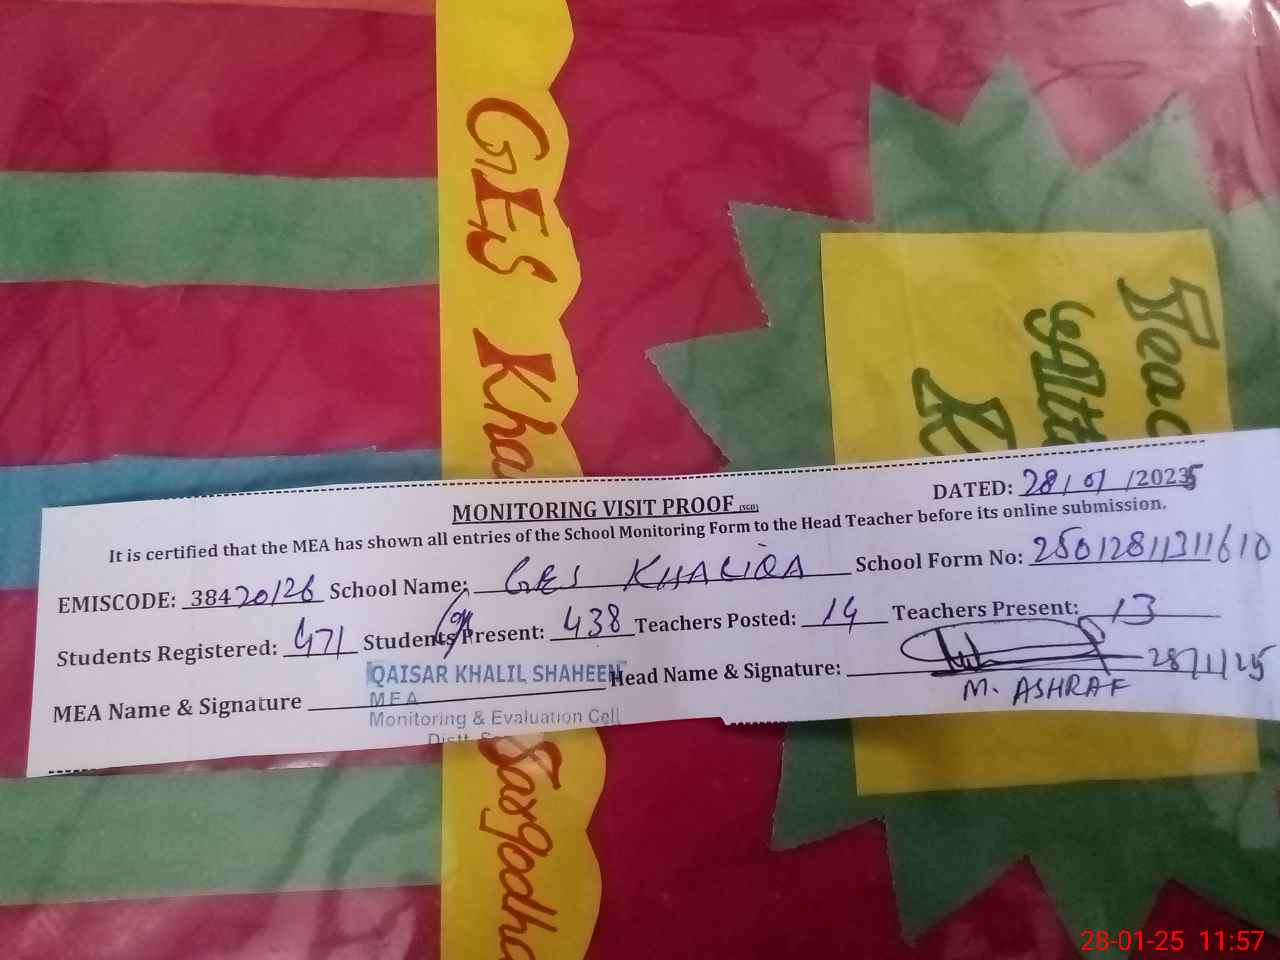 GES Kha
Sargodha
Teac
Atte
R
MONITORING VISIT PROOF (SGD)
DATED: 28/01/2025
It is certified that the MEA has shown all entries of the School Monitoring Form to the Head Teacher before its online submission.
EMISCODE: 38420126 School Name: GES KHALIQA School Form No: 25012811311610
Students Registered: 471 Students Present: 438 Teachers Posted: 14 Teachers Present: 13
MEA Name & Signature QAISAR KHALIL SHAHEEN Head Name & Signature: 28/1/25
MEA
M. ASHRAF
Monitoring & Evaluation Cell
Distt. S
28-01-25 11:57